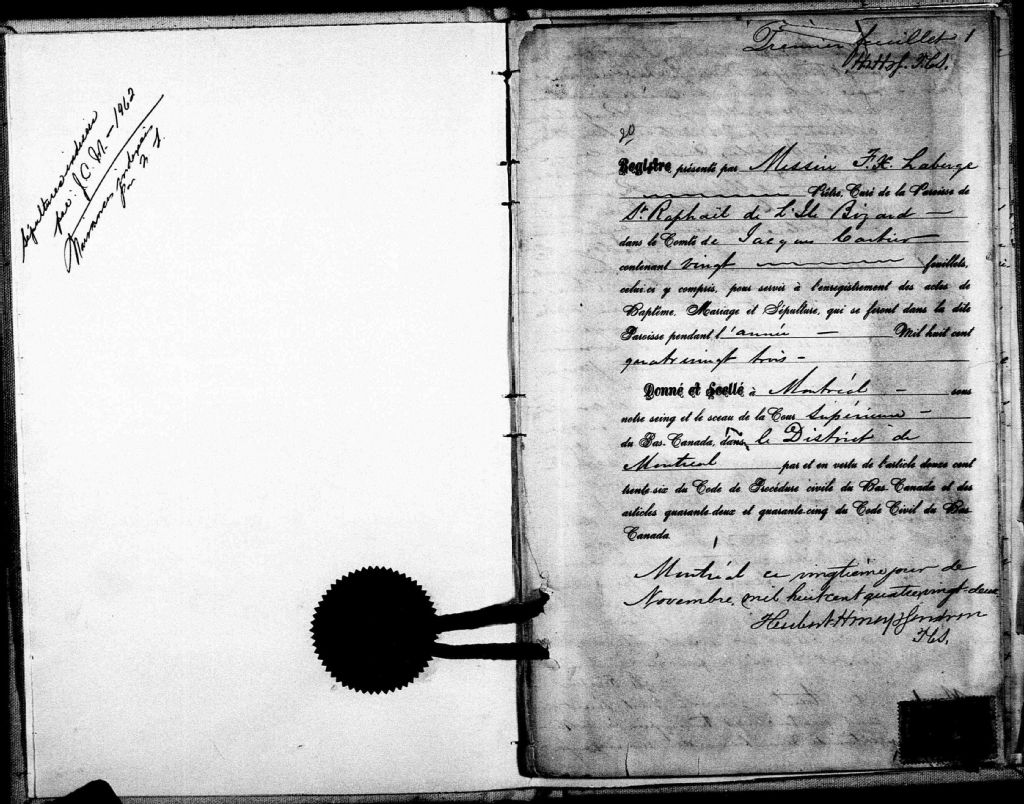 Sépultures indexées
par: J. C. M. - 1962
Naissances
Premier feuillet 1
Registre présenté par Messire F. X. Laberge
Prêtre, Curé de la Paroisse de
St. Raphaël de L'Ile Bizard —
dans le Comté de Jacques Cartier
contenant vingt feuillets,
celui-ci y compris, pour servir à l'enregistrement des actes de
Baptême, Mariage et Sépulture, qui se feront dans la dite
Paroisse pendant l'année — Mil huit cent
quatrevingt trois -
Donné et Scellé à Montréal - sous
notre seing et le sceau de la Cour Supérieure -
du Bas-Canada, dans le District de
Montreal par et en vertu de l'article douze cent
trente-six du Code de Procédure civile du Bas-Canada et des
articles quarante-deux et quarante-cinq du Code Civil du Bas
Canada.
Montréal ce vingtième jour de
Novembre, mil huit cent quatrevingt-deux